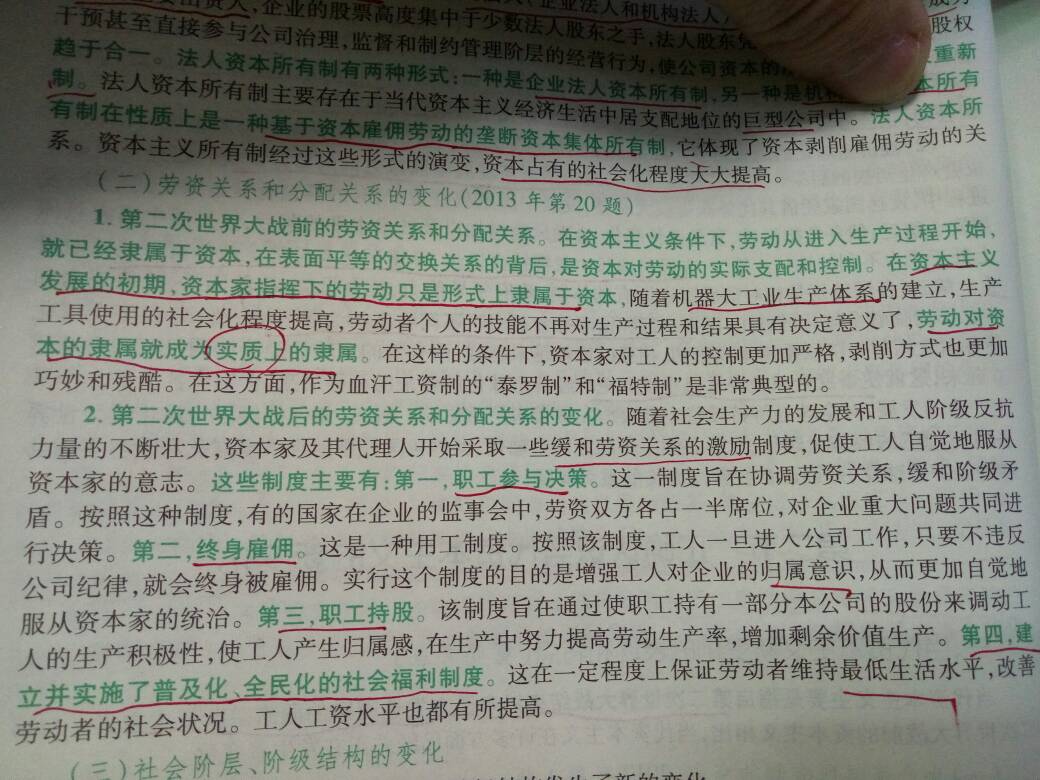 要出资人,企业的股票高度集中于少数法人股东之手,法人股东
干预甚至直接参与公司治理,监督和制约管理阶层的经营行为,使公司资本的 股权
趋于合一。法人资本所有制有两种形式:一种是企业法人资本所有制,另一种是机 重新
制。法人资本所有制主要存在于当代资本主义经济生活中居支配地位的巨型公司中。法人资本所 本所有
有制在性质上是一种基于资本雇佣劳动的垄断资本集体所有制,它体现了资本剥削雇佣劳动的关
系。资本主义所有制经过这些形式的演变,资本占有的社会化程度大大提高。
(二)劳资关系和分配关系的变化(2013年第20题)
1. 第二次世界大战前的劳资关系和分配关系。在资本主义条件下,劳动从进入生产过程开始,
就已经隶属于资本,在表面平等的交换关系的背后,是资本对劳动的实际支配和控制。在资本主义
发展的初期,资本家指挥下的劳动只是形式上隶属于资本,随着机器大工业生产体系的建立,生产
工具使用的社会化程度提高,劳动者个人的技能不再对生产过程和结果具有决定意义了,劳动对资
本的隶属就成为实质上的隶属。在这样的条件下,资本家对工人的控制更加严格,剥削方式也更加
巧妙和残酷。在这方面,作为血汗工资制的“泰罗制”和“福特制”是非常典型的。
2. 第二次世界大战后的劳资关系和分配关系的变化。随着社会生产力的发展和工人阶级反抗
力量的不断壮大,资本家及其代理人开始采取一些缓和劳资关系的激励制度,促使工人自觉地服从
资本家的意志。这些制度主要有:第一,职工参与决策。这一制度旨在协调劳资关系,缓和阶级矛
盾。按照这种制度,有的国家在企业的监事会中,劳资双方各占一半席位,对企业重大问题共同进
行决策。第二,终身雇佣。这是一种用工制度。按照该制度,工人一旦进入公司工作,只要不违反
公司纪律,就会终身被雇佣。实行这个制度的目的是增强工人对企业的归属意识,从而更加自觉地
服从资本家的统治。第三,职工持股。该制度旨在通过使职工持有一部分本公司的股份来调动工
人的生产积极性,使工人产生归属感,在生产中努力提高劳动生产率,增加剩余价值生产。第四,建
立并实施了普及化、全民化的社会福利制度。这在一定程度上保证劳动者维持最低生活水平,改善
劳动者的社会状况。工人工资水平也都有所提高。
(三)社会阶层、阶级结构的变化